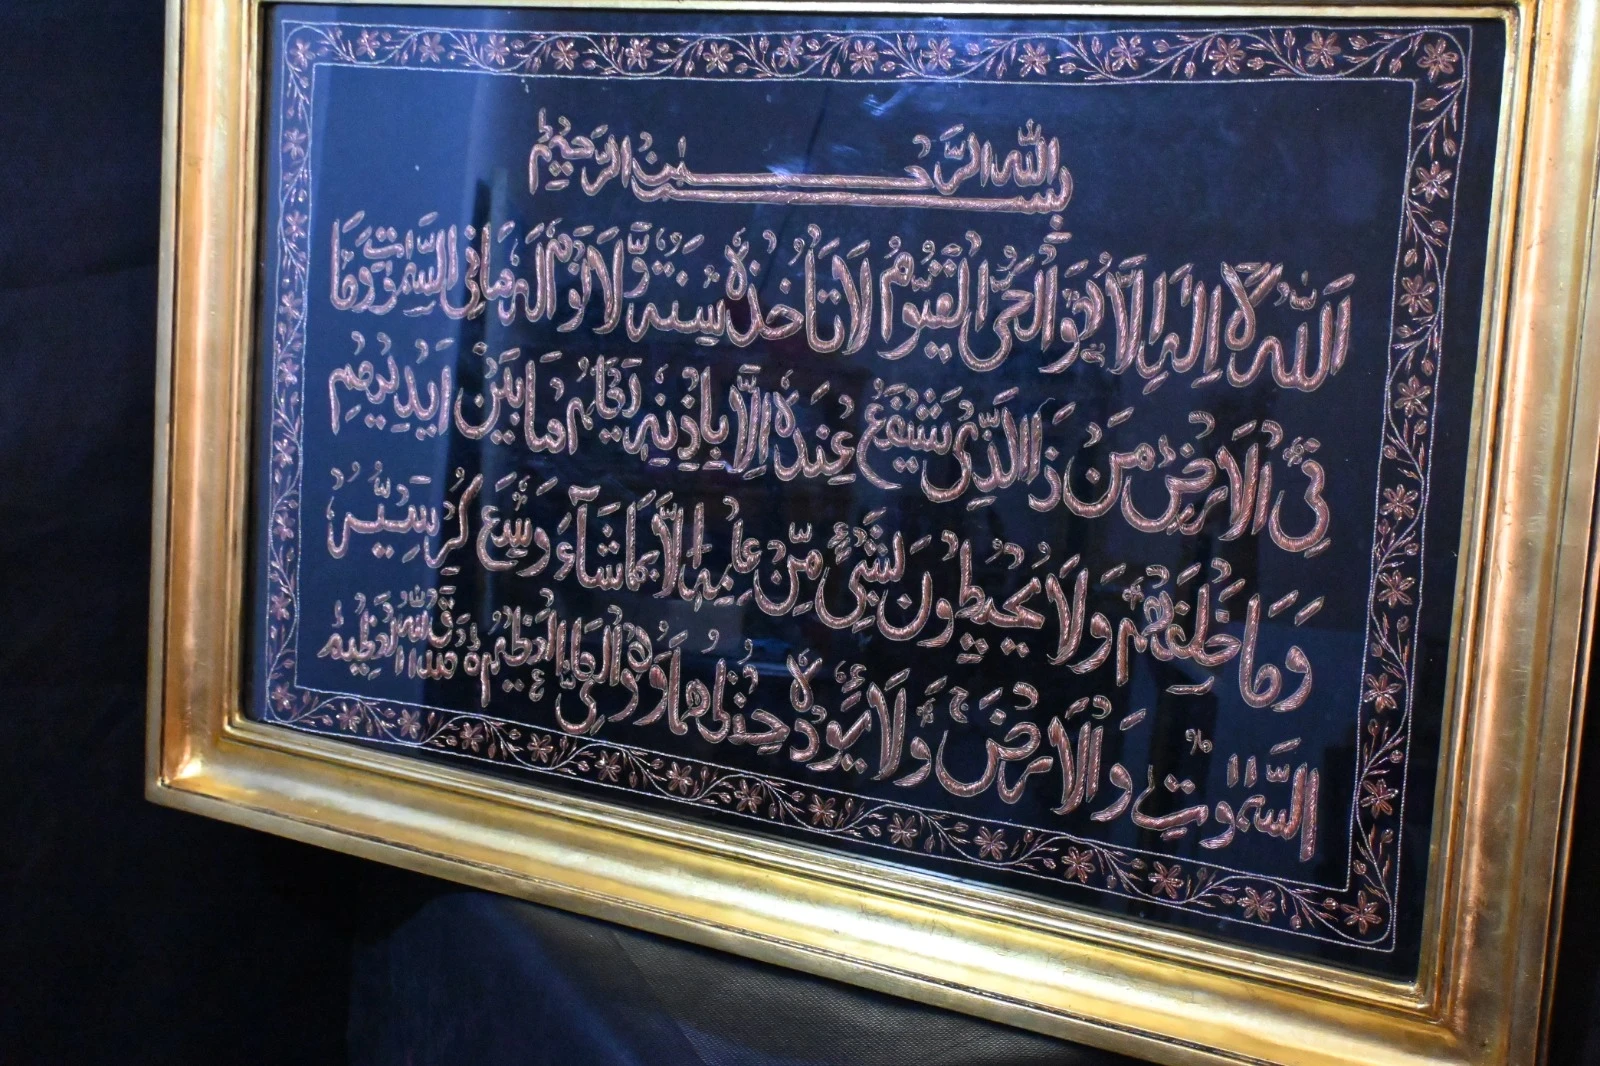 بسم الله الرحمن الرحيم
اَللّٰهُ لَا اِلٰهَ اِلَّا هُوَ اَلْحَىُّ الْقَيُّوْمُ لَا تَاْخُذُهٗ سِنَةٌ وَّلَا نَوْمٌ لَهٗ مَا فِى السَّمٰوٰتِ وَمَا
فِى الْاَرْضِ مَنْ ذَا الَّذِىْ يَشْفَعُ عِنْدَهٗ اِلَّا بِاِذْنِهٖ يَعْلَمُ مَا بَيْنَ اَيْدِيْهِمْ
وَمَا خَلْفَهُمْ وَلَا يُحِيْطُوْنَ بِشَىْءٍ مِّنْ عِلْمِهٖ اِلَّا بِمَا شَآءَ وَسِعَ كُرْسِيُّهُ
السَّمٰوٰتِ وَالْاَرْضَ وَلَا يَئُوْدُهٗ حِفْظُهُمَا وَهُوَ الْعَلِىُّ الْعَظِيْمُ صَدَقَ اللّٰهُ الْعَظِيْمُ